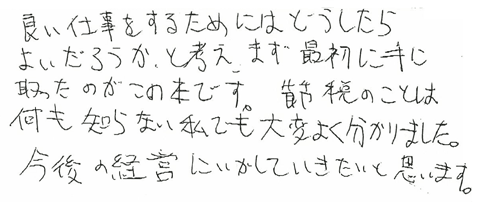 良い仕事をするためにはどうしたら
よいだろうか、と考え、まず最初に手に
取ったのがこの本です。節税のことは
何も知らない私でも大変よく分かりました。
今後の経営にいかしていきたいと思います。